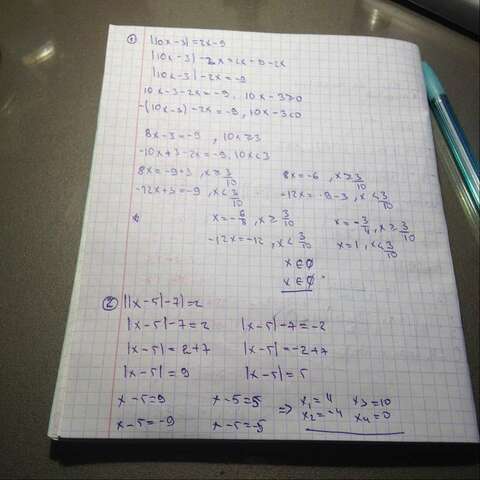 ① |10x-3|=2x-9
|10x-3|-2x=2x-9-2x
|10x-3|-2x=-9
10x-3-2x=-9, 10x-3≥0
-(10x-3)-2x=-9, 10x-3<0
8x-3=-9, 10x≥3
-10x+3-2x=-9, 10x<3
8x=-9+3, x≥3/10 8x=-6, x≥3/10
-12x+3=-9, x<3/10 -12x=-9-3, x<3/10
x=-6/8, x≥3/10 x=-3/4, x≥3/10
-12x=-12, x<3/10 x=1, x<3/10
x∈∅
x∈∅
② ||x-5|-7|=2
|x-5|-7=2 |x-5|-7=-2
|x-5|=2+7 |x-5|=-2+7
|x-5|=9 |x-5|=5
x-5=9 x-5=5 => x₁=4 x₃=10
x-5=-9 x-5=-5 x₂=-4 x₄=0